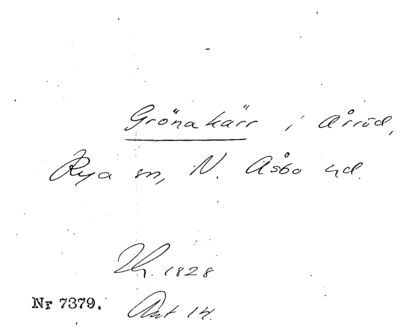 Gröna kärr i Årröd,
Rya sn, N. Åsbo hd.
Th. 1828
Nr 7379. Ant 14.